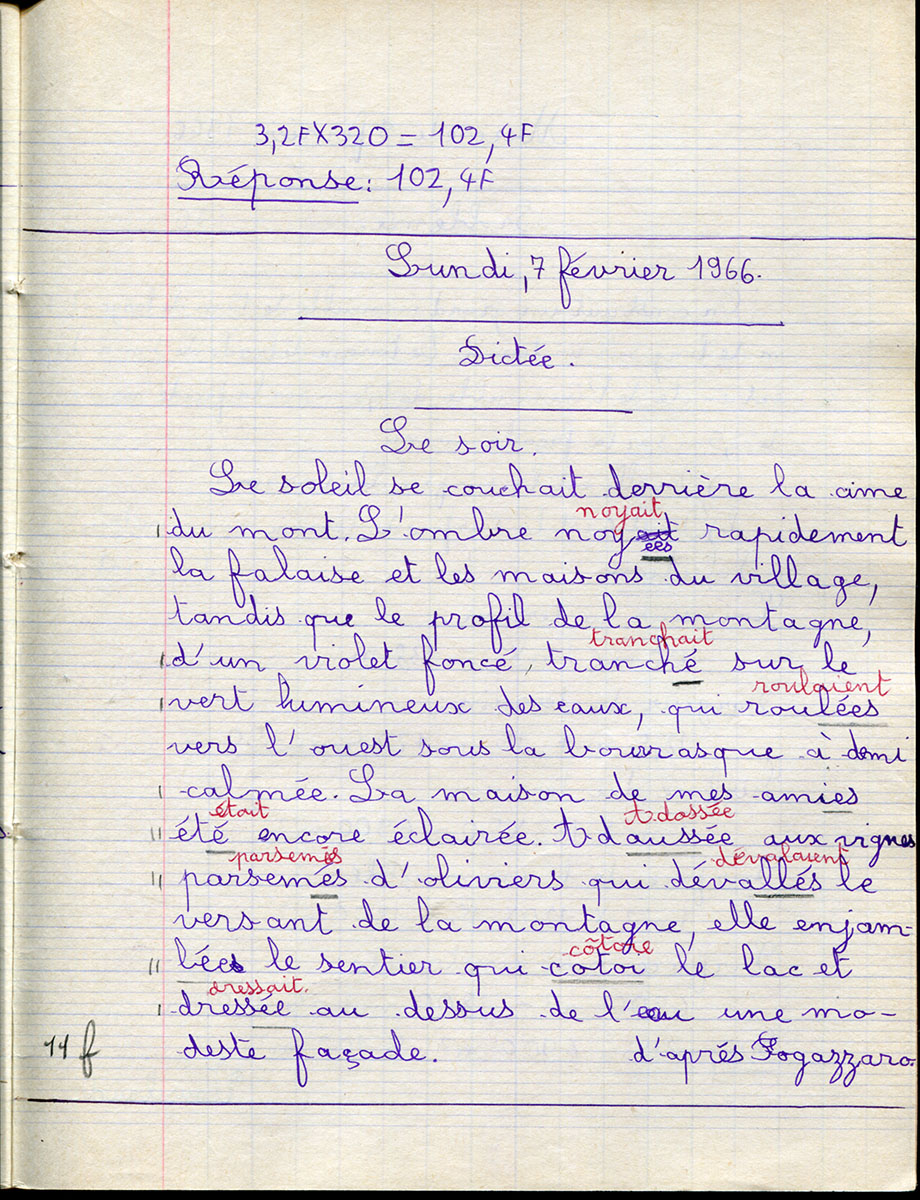 3,2F X 320 = 102,4F
Réponse : 102,4F
Lundi, 7 février 1966.
Dictée.
Le soir.
Le soleil se couchait derrière la cime
noyait
du mont. L'ombre noyées rapidement
la falaise et les maisons du village,
tandis que le profil de la montagne,
tranchait
d'un violet foncé, tranché sur le
roulaient
vert lumineux des eaux, qui roulées
vers l'ouest sous la bourrasque à demi
calmée. La maison de mes amies
était adossée
été encore éclairée. Adaussée aux vignes
parsemés dévalaient
parsemés d'oliviers qui dévallés le
versant de la montagne, elle enjam-
côtoie
bées le sentier qui cotoi le lac et
dressait.
dressée au dessus de l'eau une mo-
11 f deste façade. d'aprés Fogazzaro.